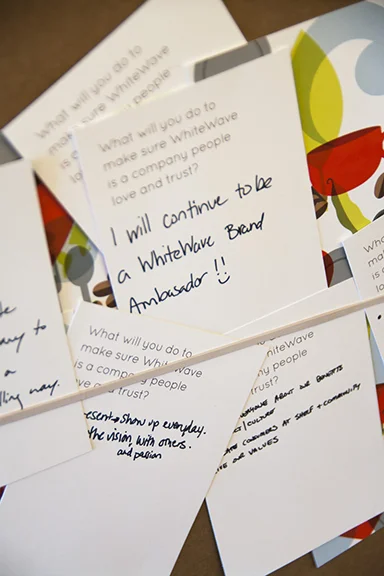 What will you do to
make sure WhiteWave
is a company
love and
people
What will you do to
make sure WhiteWave
is a company people
love and trust?
I will continue to be
a WhiteWave Brand
Ambassador !!
to
a
way.
What will you do to
make sure WhiteWave
a company people
trust?
show up everyday.
the vision, with others.
and passion
WhiteWave
company people
trust?
ABOUT BENEFITS
CULTURE
CONSUMERS AT SHELF + COMMUNITY
OUR VALUES
What
make
is a
love